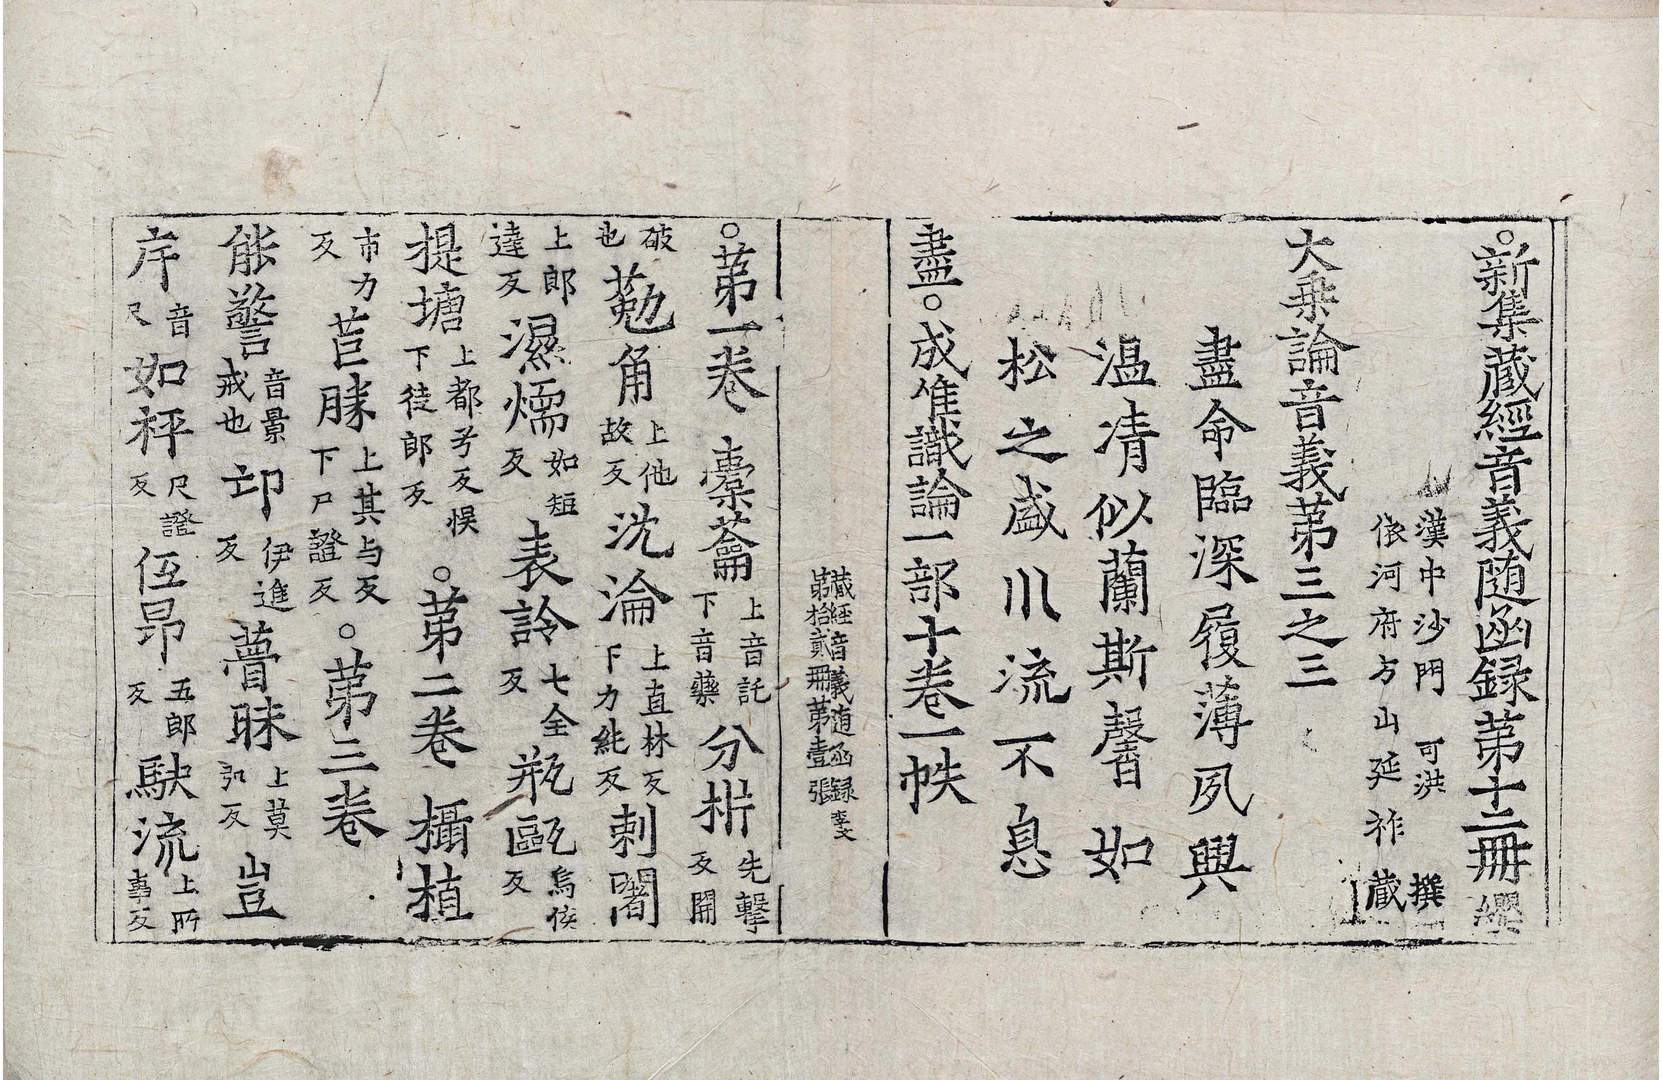 ○新集藏經音義随函録第十二冊 纓
漢中沙門 可洪 撰
依河府方山延祚藏
大乗論音義第三之三
盡命臨深履薄夙興
温凊似蘭斯馨如
松之盛川流不息
盡○成唯識論一部十卷一帙
藏經音義随函録
第拾貳冊第壹張 李文
○第一卷 橐籥 上音託下音藥 分析 先擊反開
破也 勘角 上他故反 沈淪 上直林反下力純反 剌闍
上郎達反 濕煗 如短反 表詮 七全反 瓶甌 烏侯反
提塘 上都兮反悮下徒郎反 ○第二卷 攝植
市力反 苣勝 上其与反下尸證反 ○第三卷
能警 音景戒也 印 伊進反 瞢昧 上莫弘反 豈
斥 音尺 如秤 尺證反 伍昂 五郎反 駃流 上所事反